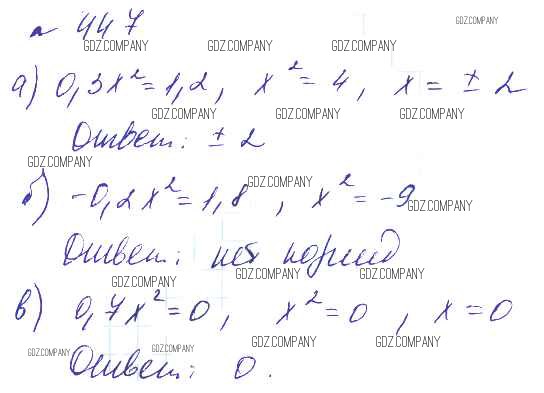 № 447
GDZ.COMPANY
GDZ.COMPANY GDZ.COMPANY GDZ.COMPANY
а) 0,3x² = 1,2, x² = 4, x = ± 2
GDZ.COMPANY GDZ.COMPANY GDZ.COMPANY
Ответ: ± 2
GDZ.COMPANY
б) -0,2x² = 1,8, x² = -9
GDZ.COMPANY GDZ.COMPANY
Ответ: нет корней
GDZ.COMPANY GDZ.COMPANY GDZ.COMPANY
в) 0,7x² = 0, x² = 0, x = 0
GDZ.COMPANY GDZ.COMPANY GDZ.COMPANY GDZ.COMPANY
Ответ: 0.